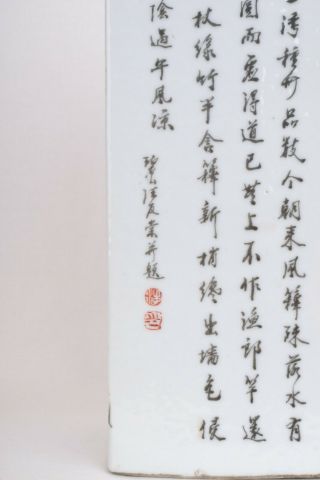 種竹品數个朝來風籜殊落水有
而虛得道已上不作漁郎竿還
杖綠竹半含籜新梢纔出墻色侵
陰過午風涼
汪友棠并題